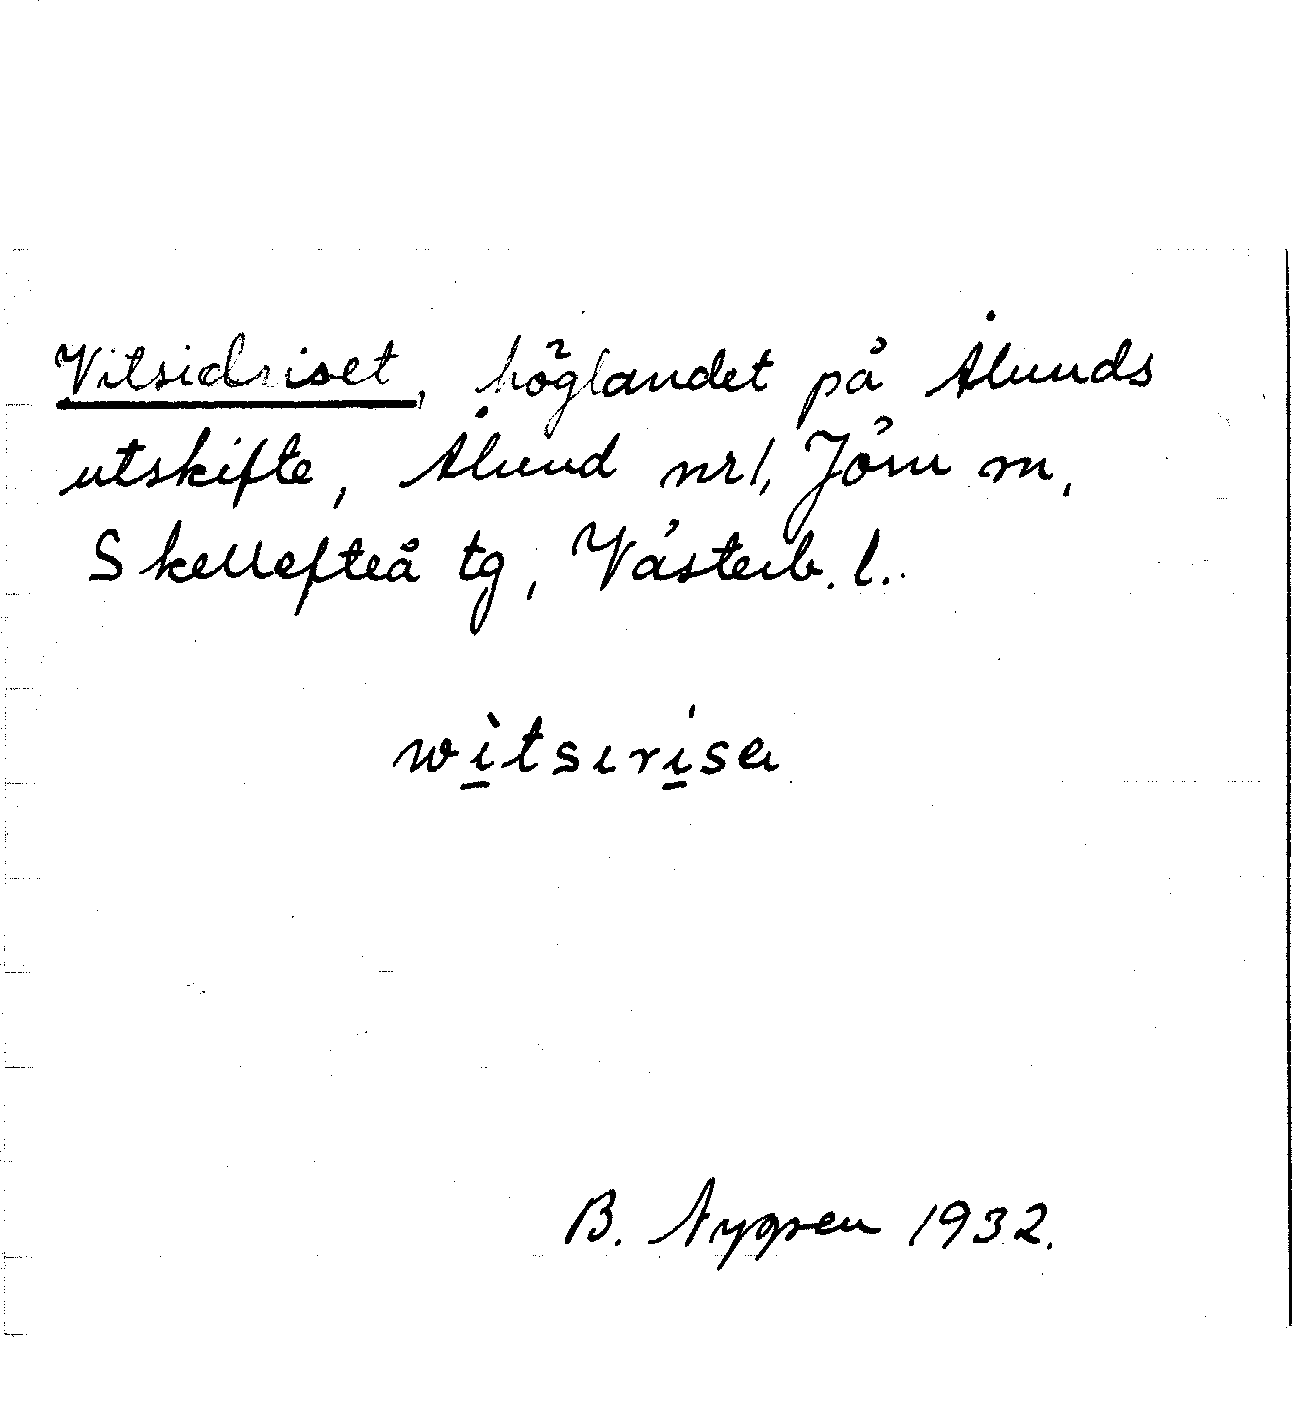 Vitsidriset, höglandet på Ålunds
utskifte, Ålund nr 1, Jörn sn,
Skellefteå tg, Västerb. l.
wìtsırísa
B. Nygren 1932.